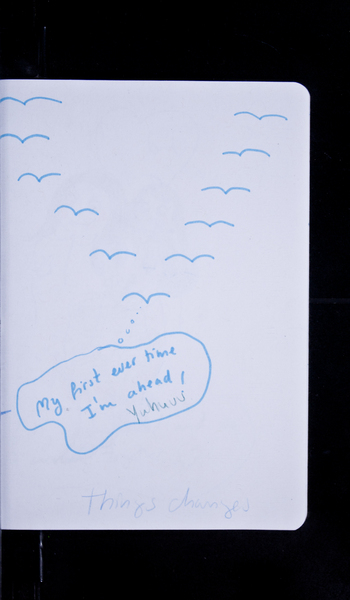 My first ever time
I'm ahead,
Yuhuuu
Things changes